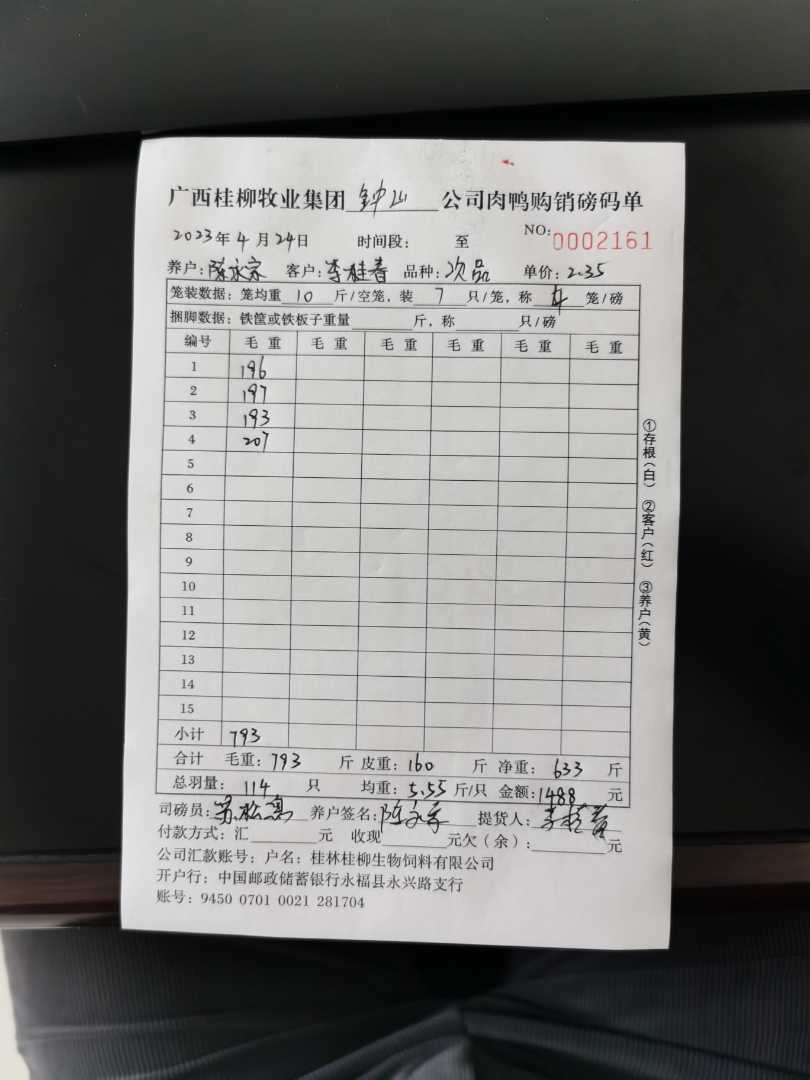 广西桂柳牧业集团 钟山 公司肉鸭购销磅码单
2023年4月24日 时间段： 至 NO:0002161
养户：陈永家 客户：李桂春 品种：次品 单价：2.35
笼装数据：笼均重 10 斤/空笼，装 7 只/笼，称 4 笼/磅
捆脚数据：铁筐或铁板子重量 斤，称 只/磅
编号 毛重 毛重 毛重 毛重 毛重 毛重
1 196
2 197
3 193
4 207
5
6
7
8
9
10
11
12
13
14
15
小计 793
合计 毛重：793 斤 皮重：160 斤 净重：633 斤
总羽量：114 只 均重：5.55 斤/只 金额：1488 元
司磅员： 养户签名：陈永家 提货人：李桂春
付款方式：汇 元 收现 元欠（余）： 元
公司汇款账号：户名：桂林桂柳生物饲料有限公司
开户行：中国邮政储蓄银行永福县永兴路支行
账号：9450 0701 0021 281704
①存根（白） ②客户（红） ③养户（黄）